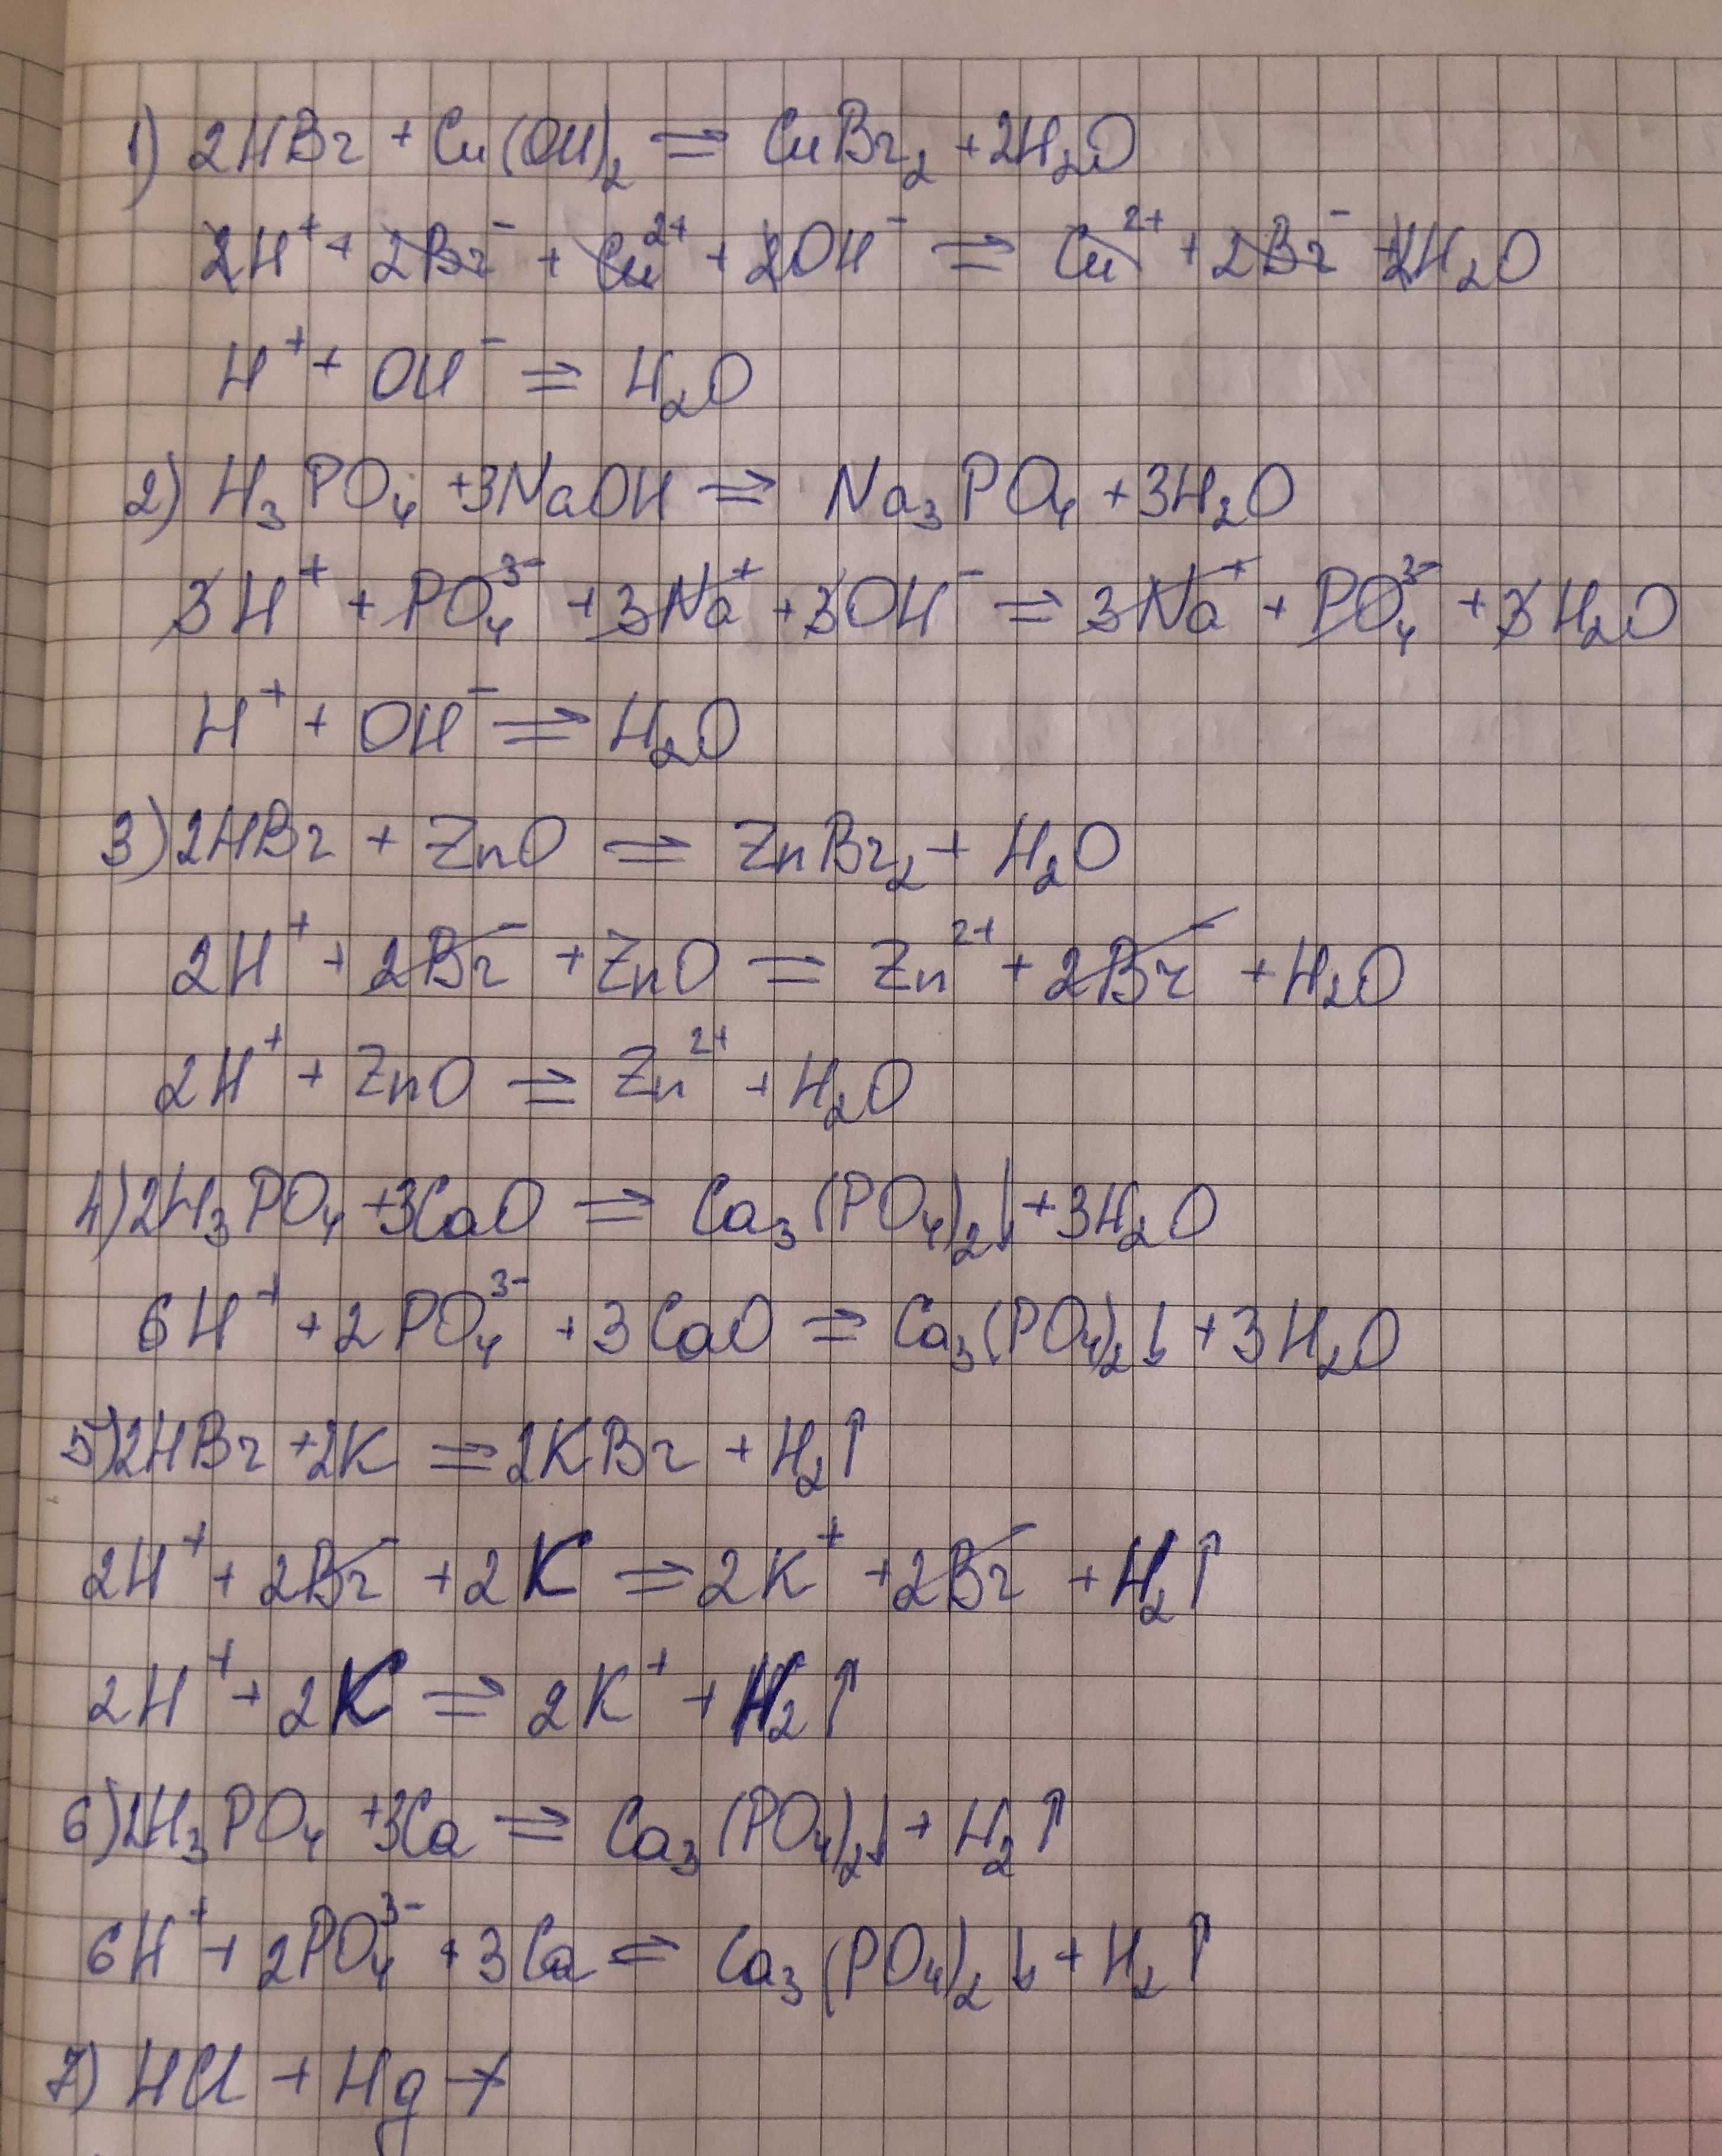 1) 2HBr + Cu(OH)₂ ⇒ CuBr₂ + 2H₂O
2H⁺ + 2Br⁻ + Cu²⁺ + 2OH⁻ ⇒ Cu²⁺ + 2Br⁻ + 2H₂O
H⁺ + OH⁻ ⇒ H₂O
2) H₃PO₄ + 3NaOH ⇒ Na₃PO₄ + 3H₂O
3H⁺ + PO₄³⁻ + 3Na⁺ + 3OH⁻ ⇒ 3Na⁺ + PO₄³⁻ + 3H₂O
H⁺ + OH⁻ ⇒ H₂O
3) 2HBr + ZnO ⇒ ZnBr₂ + H₂O
2H⁺ + 2Br⁻ + ZnO ⇒ Zn²⁺ + 2Br⁻ + H₂O
2H⁺ + ZnO ⇒ Zn²⁺ + H₂O
4) 2H₃PO₄ + 3CaO ⇒ Ca₃(PO₄)₂↓ + 3H₂O
6H⁺ + 2PO₄³⁻ + 3CaO ⇒ Ca₃(PO₄)₂↓ + 3H₂O
5) 2HBr + 2K ⇒ 2KBr + H₂↑
2H⁺ + 2Br⁻ + 2K ⇒ 2K⁺ + 2Br⁻ + H₂↑
2H⁺ + 2K ⇒ 2K⁺ + H₂↑
6) 2H₃PO₄ + 3Ca ⇒ Ca₃(PO₄)₂↓ + H₂↑
6H⁺ + 2PO₄³⁻ + 3Ca ⇒ Ca₃(PO₄)₂↓ + H₂↑
7) HCl + Hg ↛